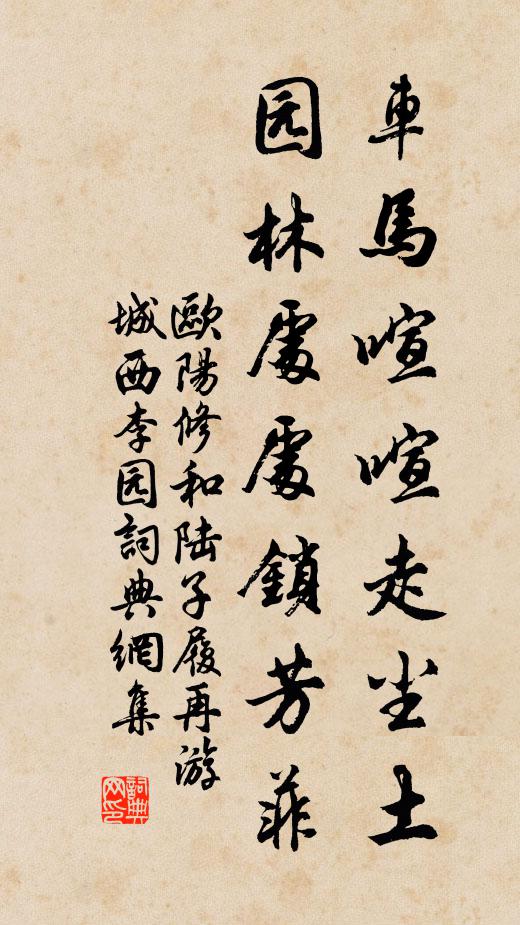 車馬喧喧走尘土
园林處處鎖芳菲
歐陽修和陆子履再游
城西李园詞典網集
詞典
网印